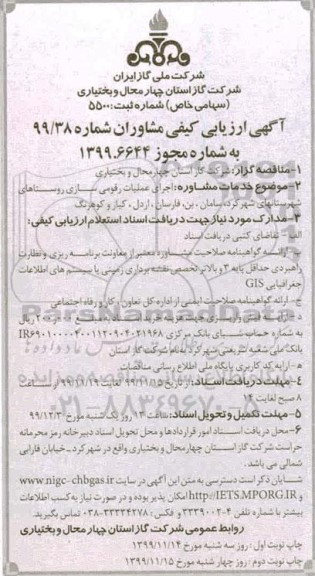 شرکت ملی گاز ایران
شرکت گاز استان چهارمحال و بختیاری
(سهامی خاص) شماره ثبت: ۵۵۰۰
آگهی ارزیابی کیفی مشاوران شماره ۹۹/۳۸
به شماره مجوز ۱۳۹۹.۶۶۴۴
۱-مناقصه گزار: شرکت گاز استان چهارمحال و بختیاری
۲-موضوع خدمات مشاوره: اجرای عملیات رقومی سازی روستاهای
شهرستانهای شهرکرد، سامان، بن، فارسان، اردل، کیار و کوهرنگ
۳-مدارک مورد نیاز جهت دریافت اسناد استعلام ارزیابی کیفی:
الف- تقاضای کتبی دریافت اسناد
گواهینامه صلاحیت مشاوره معتبر از معاونت برنامه ریزی و نظارت
راهبردی حداقل پایه ۳ و بالاتر تخصص نقشه برداری زمینی یا سیستم های اطلاعات
جغرافیایی GIS
ج- ارائه گواهینامه صلاحیت ایمنی از اداره کل تعاون، کار و رفاه اجتماعی
ریال
به شماره حساب شبای بانک مرکزی IR۶۹۰۱۰۰۰۰۴۰۰۱۱۲۰۹۰۴۰۲۱۹۶۸
بانک ملی شعبه شهرکرد به نام شرکت گاز استان
ه- ارایه کد کاربری پایگاه ملی اطلاع رسانی مناقصات
۴-مهلت دریافت اسناد: از تاریخ ۹۹/۱۱/۱۵ لغایت ۹۹/۱۱/۱۹ از ساعت
۸ صبح لغایت ۱۴
۵-مهلت تکمیل و تحویل اسناد: ساعت ۱۴ روز شنبه مورخ ۹۹/۱۲/۳
۶-محل دریافت اسناد امور قراردادها و محل تحویل اسناد دبیرخانه رمز محرمانه
حراست شرکت گاز استان چهارمحال و بختیاری واقع در شهرکرد- خیابان فارابی
شمالی می باشد.
شایان ذکر است دسترسی به متن این آگهی در سایت www.nigc-chbgas.ir
و http://IETS.MPORG.IR امکان پذیر بوده و در صورت نیاز به کسب اطلاعات
بیشتر با شماره تلفن ۴-۳۳۳۹۰۰۲ و فکس: ۳۳۳۳۴۲۷۸-۰۳۸ تماس بگیرید.
روابط عمومی شرکت گاز استان چهارمحال و بختیاری
چاپ نوبت اول: روز سه شنبه مورخ ۱۳۹۹/۱۱/۱۴
چاپ نوبت دوم: روز چهار شنبه مورخ ۱۳۹۹/۱۱/۱۵